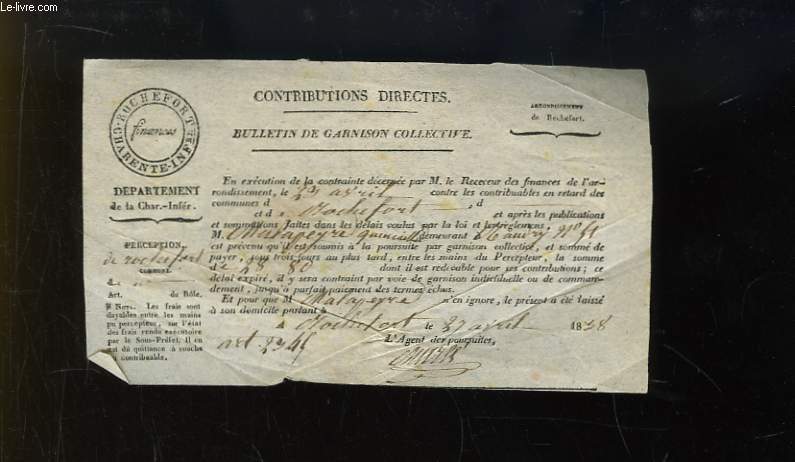 Le-livre.com
ROCHEFORT
CHARENTE-INF.re
finances
CONTRIBUTIONS DIRECTES.
BULLETIN DE GARNISON COLLECTIVE.
ARRONDISSEMENT
de Rochefort.
DÉPARTEMENT
de la Char.-Infér.
PERCEPTION
de rochefort
Art. du Rôle.
Nota. Les frais sont
payables entre les mains
du percepteur, sur l'état
des frais rendu exécutoire
par le Sous-Préfet. Il en
est dû quittance à souche
au contribuable.
En exécution de la contrainte décernée par M. le Receveur des finances de l'ar-
rondissement, le avril contre les contribuables en retard des
communes d d
et d Rochefort et après les publications
et sommations faites dans les délais voulus par la loi et les règlemens,
M. Malapeyre demeurant
est prévenu qu'il est soumis à la poursuite par garnison collective, et sommé de
payer, sous trois jours au plus tard, entre les mains du Percepteur, la somme
d 48 80 dont il est redevable pour ses contributions; ce
délai expiré, il y sera contraint par voie de garnison individuelle ou de comman-
dement, jusqu'à parfait paiement des termes échus.
Et pour que M Malapeyre n'en ignore, le présent a été laissé
à son domicile parlant à
A Rochefort le 27 avril 1838
L'Agent des poursuites,
art.